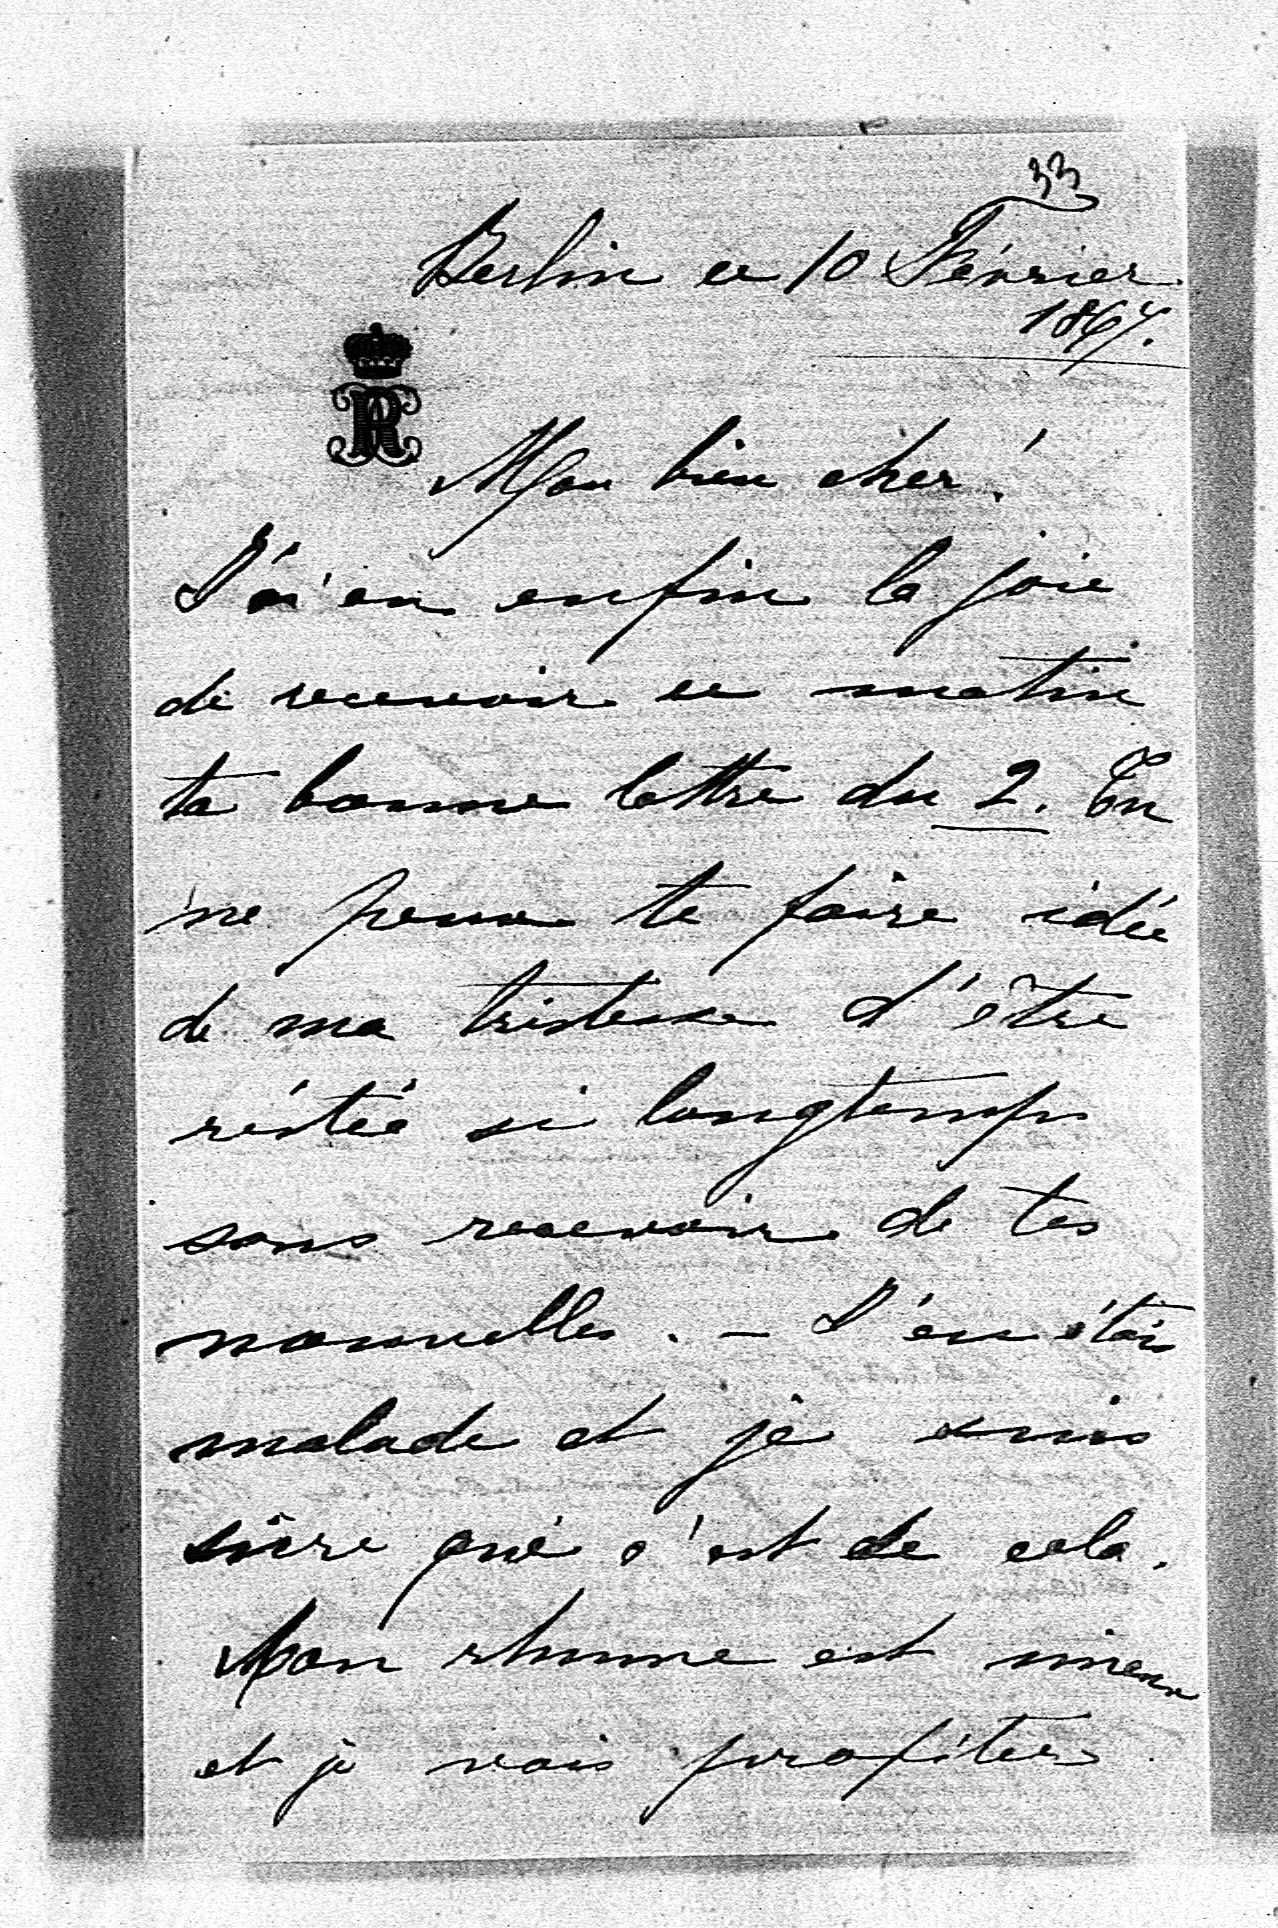 33
Berlin ce 10 Février
1867.
Mon bien cher!
J'ai eu enfin la joie
de recevoir ce matin
ta bonne lettre du 2. Tu
ne peux te faire idée
de ma tristesse d'être
restée si longtemps
sans recevoir de tes
nouvelles. – J'en étais
malade et je suis
sûre que c'est de cela.
Mon rhume est mieux
et je vais profiter